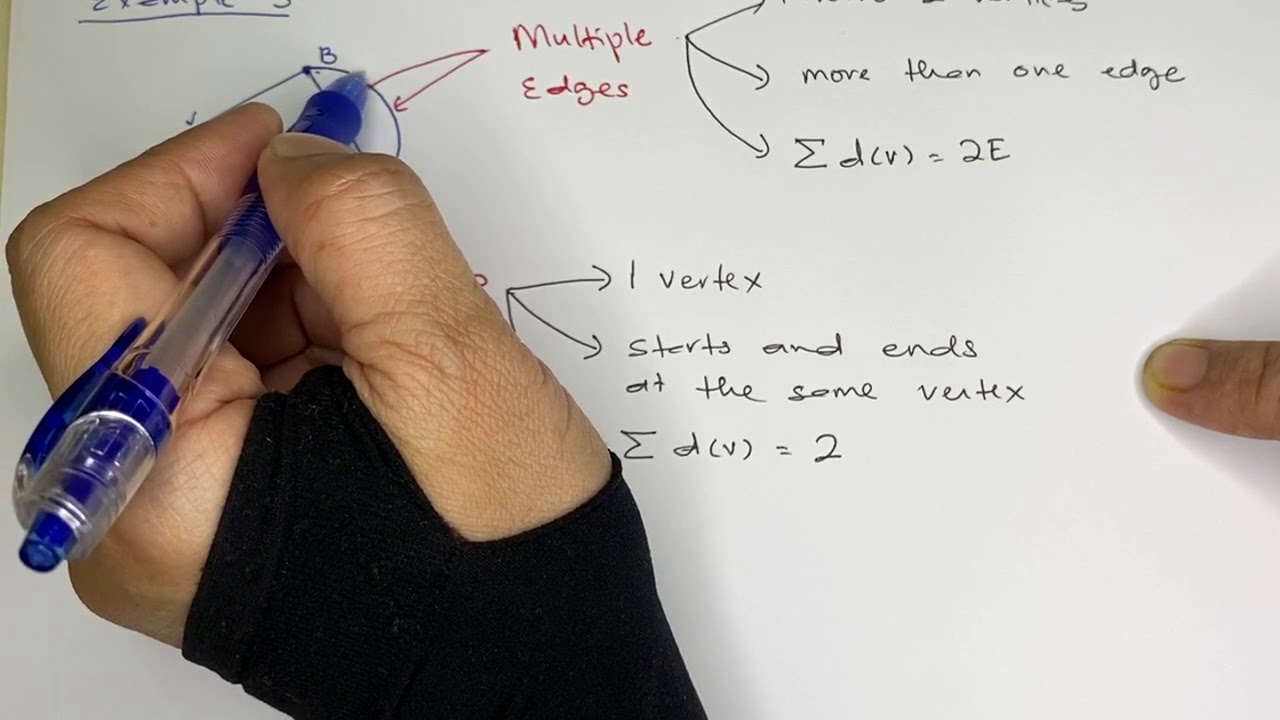 Example 3
B
Multiple
Edges
2 vertices
more than one edge
Σ d(v) = 2E
1 vertex
starts and ends
at the same vertex
Σ d(v) = 2